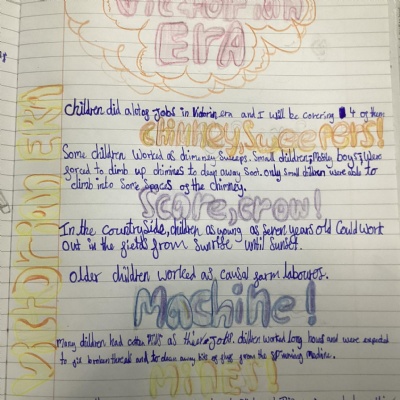 Victorian
ERA
VICTORIAN ERA
Children did alotog Jobs in Victorin era and I will be covering 4 og them
Chimney, Sweepers!
Some children Worked as chimeney Sweeps. Small children, Mostly boys, Were
gorced to climb up chimines to clean away Soot. only Small children were able to
climb into Some Spaces og the chimney.
Score, crow!
In the Countryside, children as young as Seven years old Could work
out in the fields from Sunrise until Sunset.
older children worked as causal farm labours.
Machine!
Many children had cotten Mills as there Jobs. children worked long hours and were expected
to fix broken threads and to clean away bits of fluff from the Spinning Machine.
Mines!